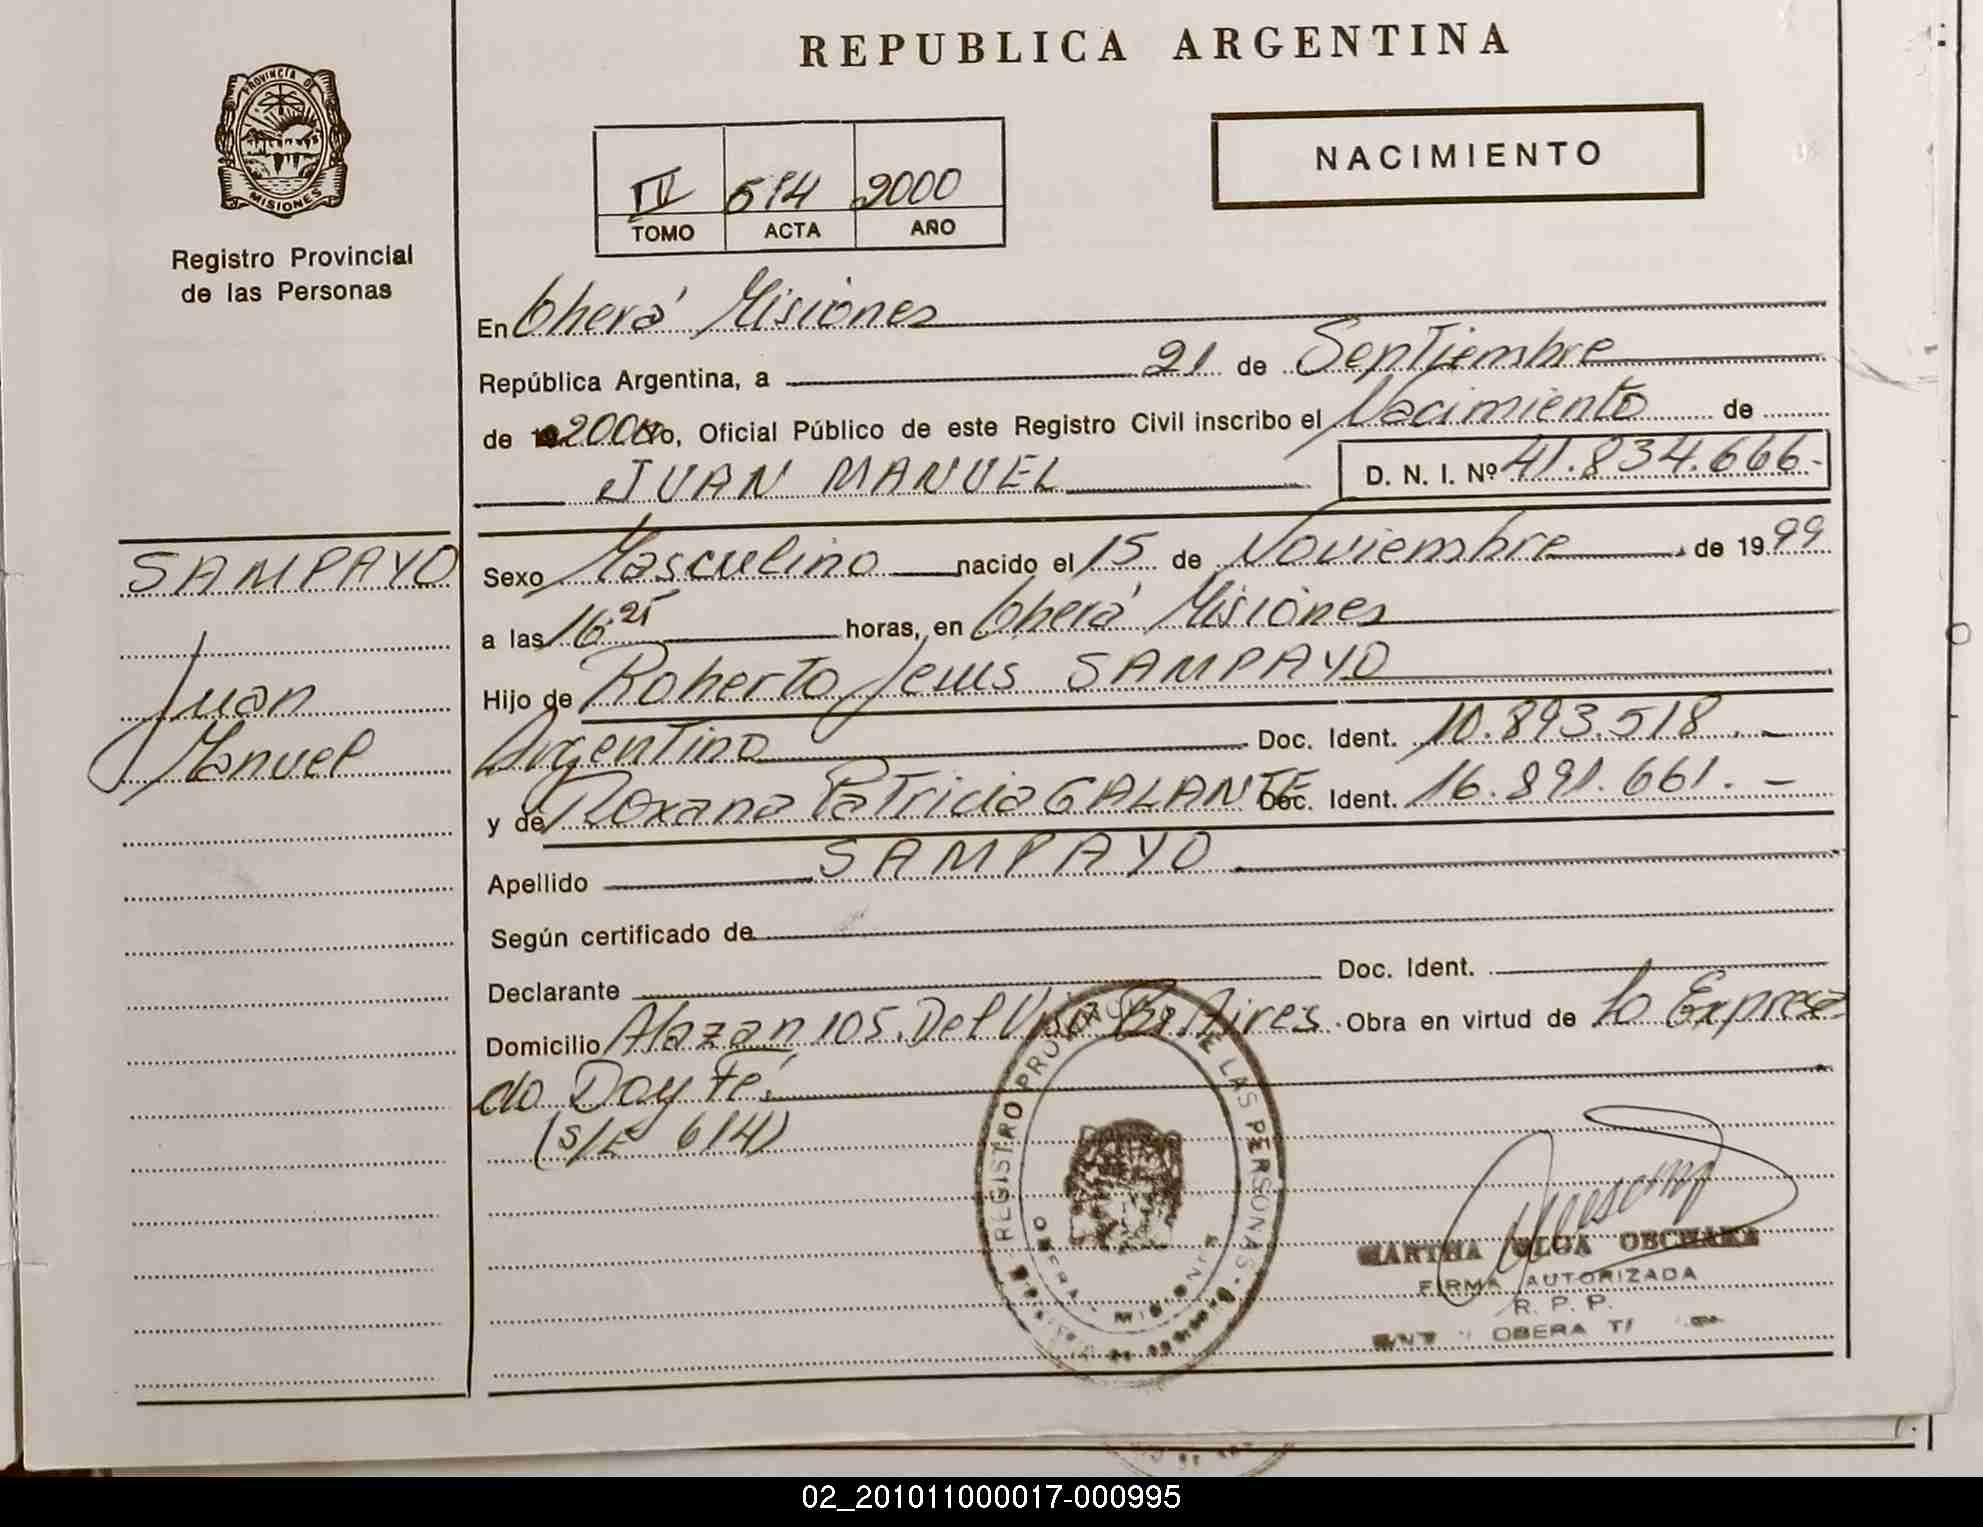 REPUBLICA ARGENTINA
PROVINCIA DE
MISIONES
Registro Provincial
de las Personas
NACIMIENTO
IV 614 2000
TOMO ACTA AÑO
En Oberá Misiones
República Argentina, a 21 de Septiembre
de 2000 Yo, Oficial Público de este Registro Civil inscribo el Nacimiento de
JUAN MANUEL D. N. I. Nº 41.834.666.-
SAMPAYO
Juan
Manuel
Sexo Masculino nacido el 15 de Noviembre de 1999
a las 16.25 horas, en Oberá Misiones
Hijo de Roberto Jesus SAMPAYO
Argentino Doc. Ident. 10.893.518.-
y de Roxana Patricia GALANTE Doc. Ident. 16.891.661.-
Apellido SAMPAYO
Según certificado de
Declarante Doc. Ident.
Domicilio Alazan 105. Del Bs. Aires. Obra en virtud de lo Expresa
do Doy Fé.
(S/E 614)
REGISTRO PROVINCIAL DE LAS PERSONAS
OBERA - MISIONES
MARTHA OLGA
FIRMA AUTORIZADA
R. P. P.
OBERA
02_201011000017-000995